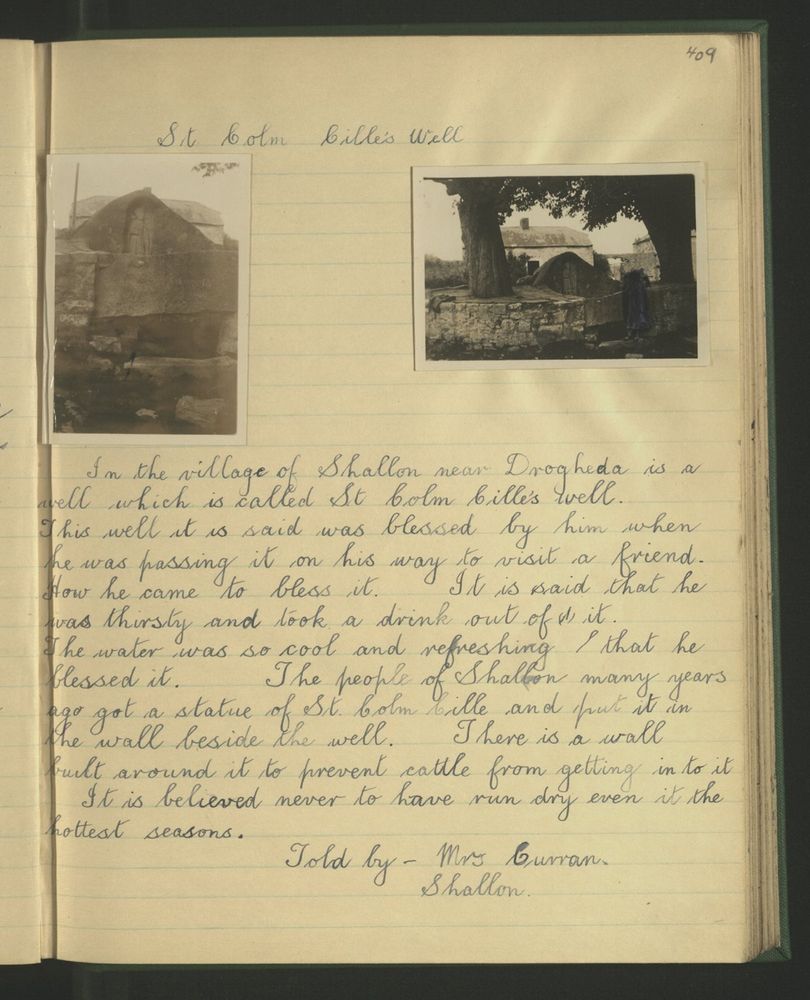 409
St Colm Cille's Well
In the village of Shallon near Drogheda is a
well which is called St Colm Cille's well.
This well it is said was blessed by him when
he was passing it on his way to visit a friend.
How he came to bless it. It is said that he
was thirsty and took a drink out of it.
The water was so cool and refreshing / that he
blessed it. The people of Shallon many years
ago got a statue of St. Colm Cille and put it in
the wall beside the well. There is a wall
built around it to prevent cattle from getting in to it
It is believed never to have run dry even it the
hottest seasons.
Told by - Mrs Curran.
Shallon.